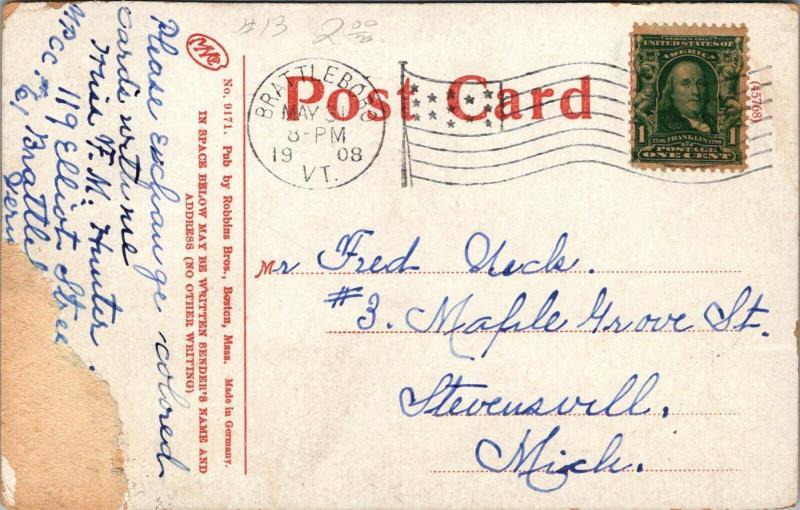 #13 2.00
Please exchange colored
cards with me
F. M. Hunter.
119 Elliot Stree
Brattle
MK
No. 9171. Pub by Robbins Bros., Boston, Mass. Made in Germany.
IN SPACE BELOW MAY BE WRITTEN SENDER'S NAME AND
ADDRESS (NO OTHER WRITING)
Post Card
BRATTLEBORO
MAY
8-PM
19 08
VT.
SERIES 1902
UNITED STATES OF
AMERICA
1706 FRANKLIN 1790
1 POSTAGE 1
ONE CENT
(45768)
Mr Fred
#3. Maple Grove St.
Stevensvill,
Mich.